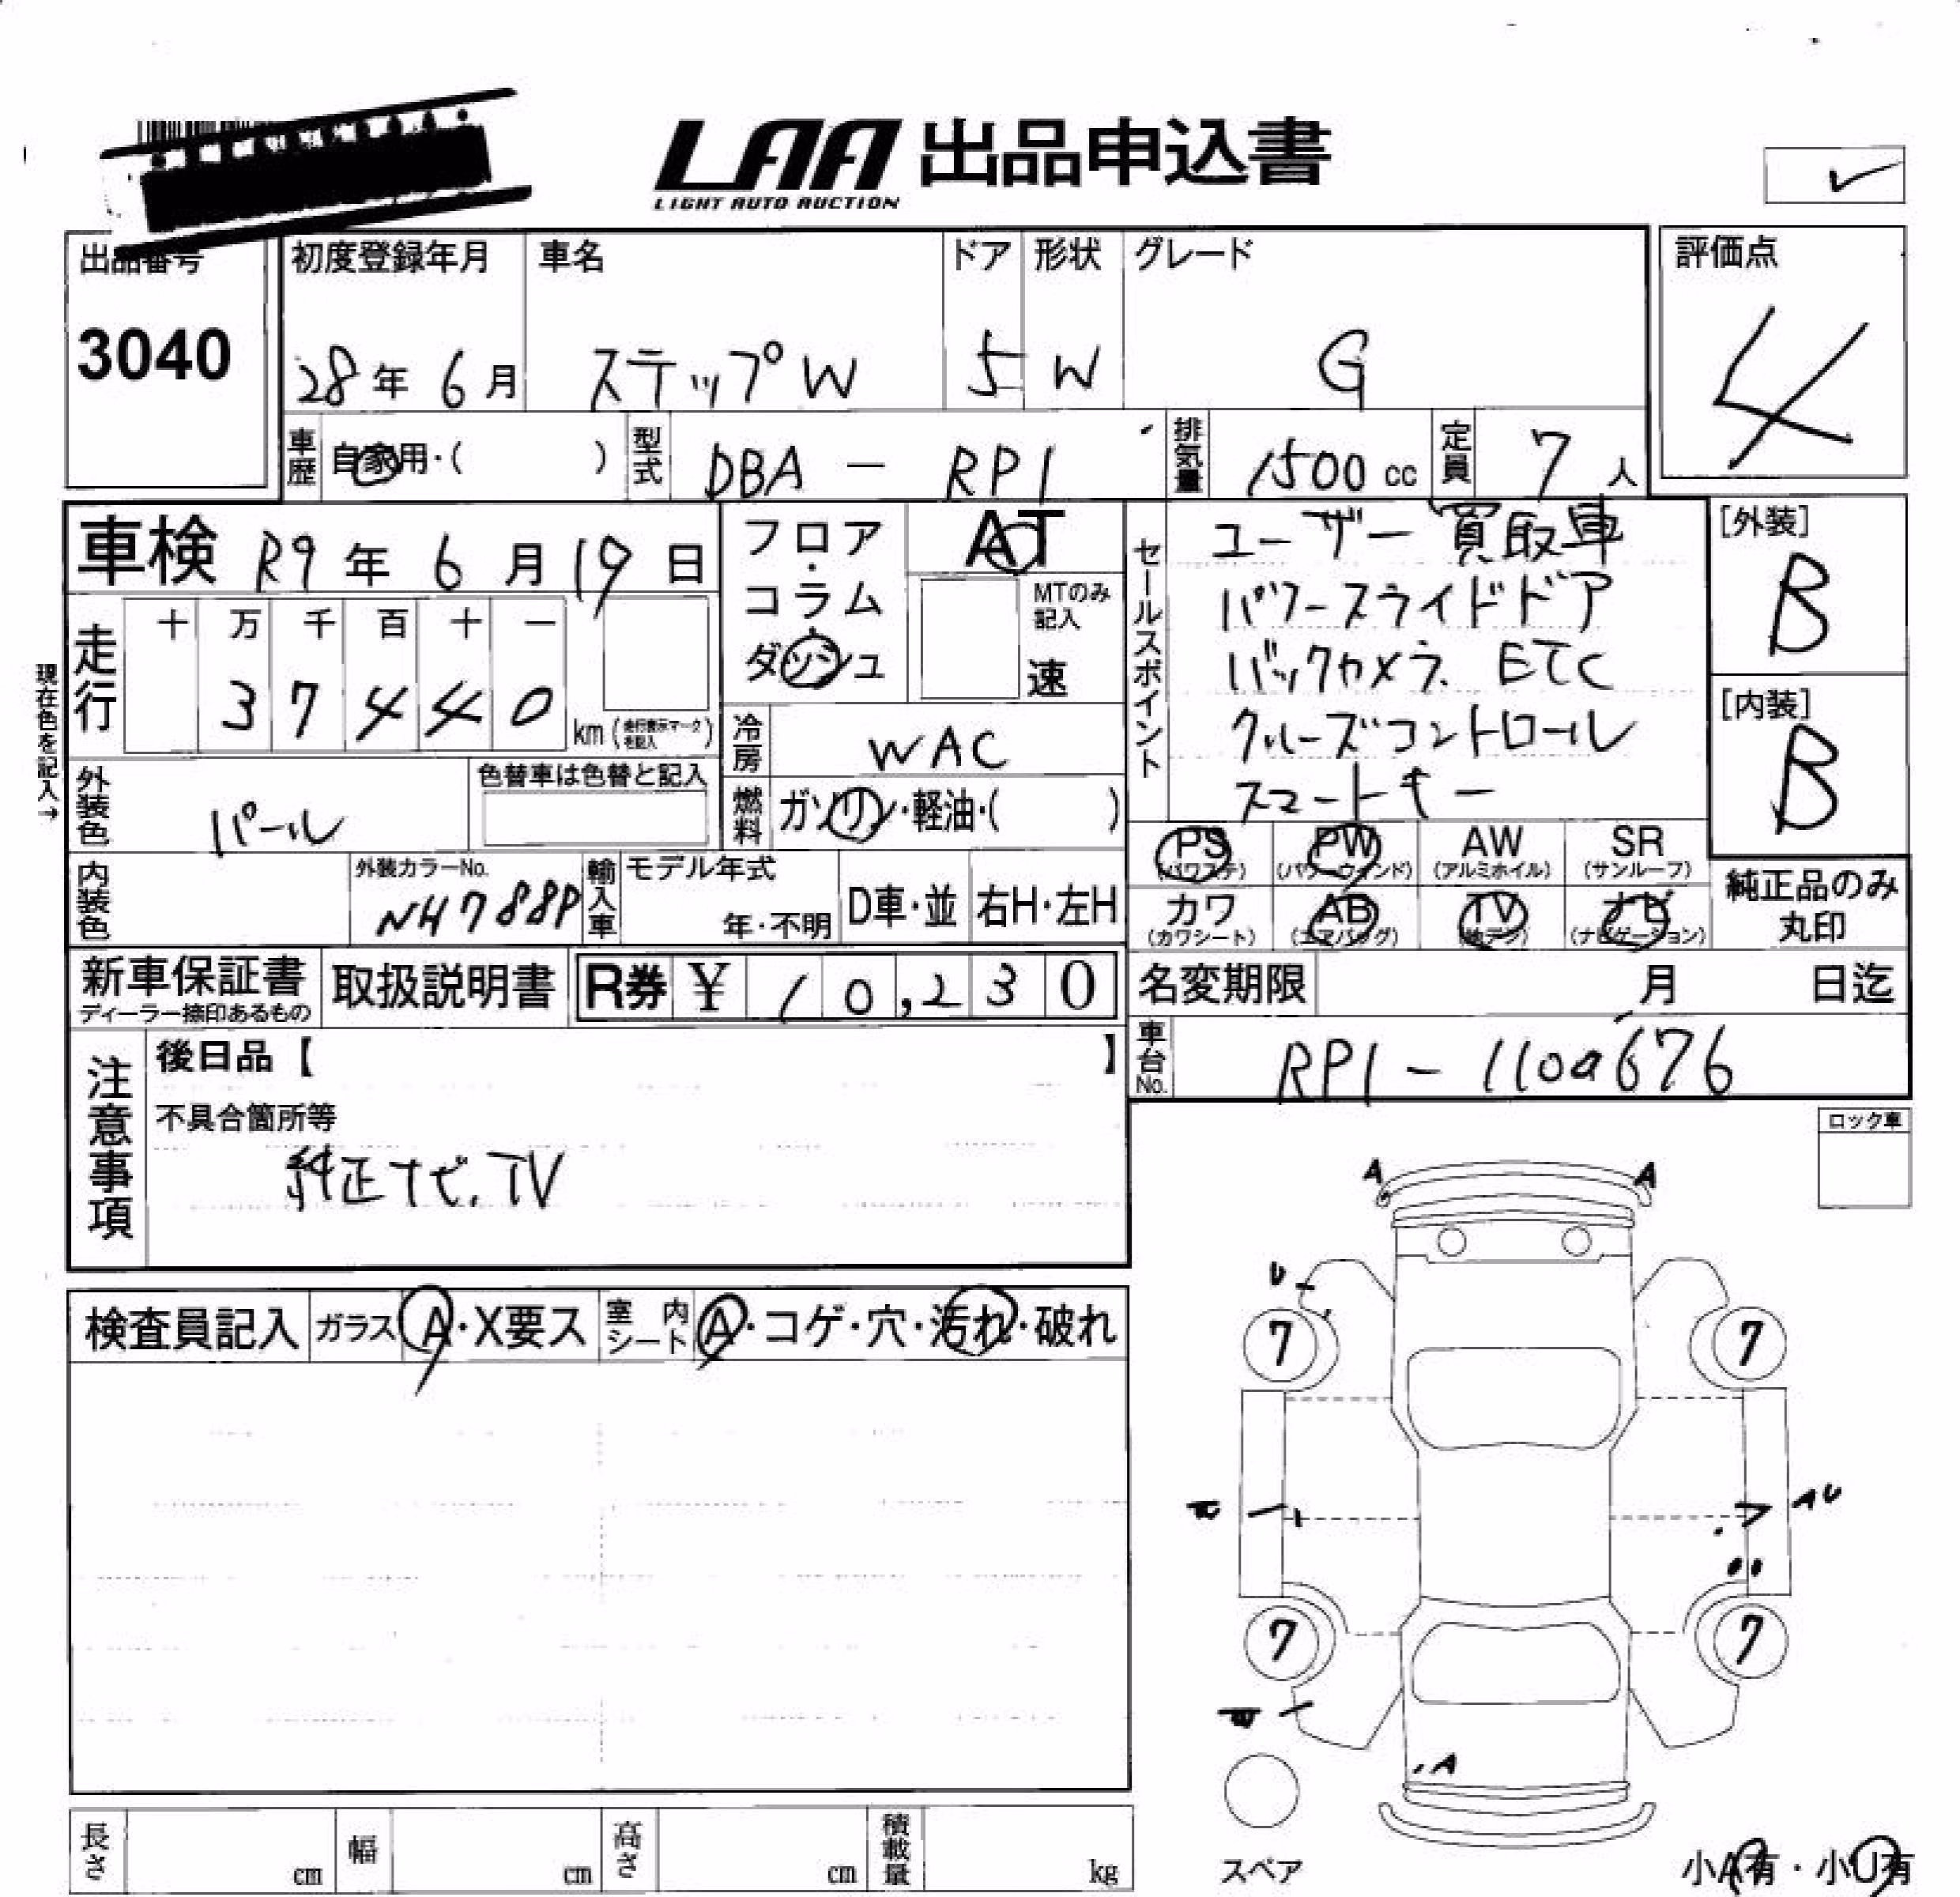 LAA 出品申込書
LIGHT AUTO AUCTION
出品番号
3040
初度登録年月
28年 6月
車名
ステップW
ドア
5
形状
W
グレード
G
評価点
4
車歴
自家用・( )
型式
DBA - RP1
排気量
1500 cc
定員
7人
車検 R9年 6月 19日
フロア・コラム・ダッシュ
AT
MTのみ記入
速
セールスポイント
ユーザー買取車
パワースライドドア
バックカメラ. ETC
クルーズコントロール
スマートキー
[外装]
B
[内装]
B
走行
十 万 千 百 十 一
3 7 4 4 0
km (走行表示マークを記入)
現在色を記入→
外装色
パール
色替車は色替と記入
冷房
WAC
燃料
ガソリン・軽油・( )
PS
(パワステ)
PW
(パワーウインド)
AW
(アルミホイル)
SR
(サンルーフ)
内装色
外装カラーNo.
NH788P
輸入車
モデル年式
年・不明
D車・並
右H・左H
カワ
(カワシート)
AB
(エアバッグ)
TV
(地デジ)
ナビ
(ナビゲーション)
純正品のみ丸印
新車保証書
ディーラー捺印あるもの
取扱説明書
R券 ¥ 10,230
名変期限 月 日迄
車台No.
注意事項
後日品【 】
不具合箇所等
純正ナビ. TV
ロック車
検査員記入
ガラス A・X要ス
室内シート A・コゲ・穴・汚れ・破れ
A A
U
7 7
A U
7 7
A
スペア
小A有・小U有
長さ cm
幅 cm
高さ cm
積載量 kg